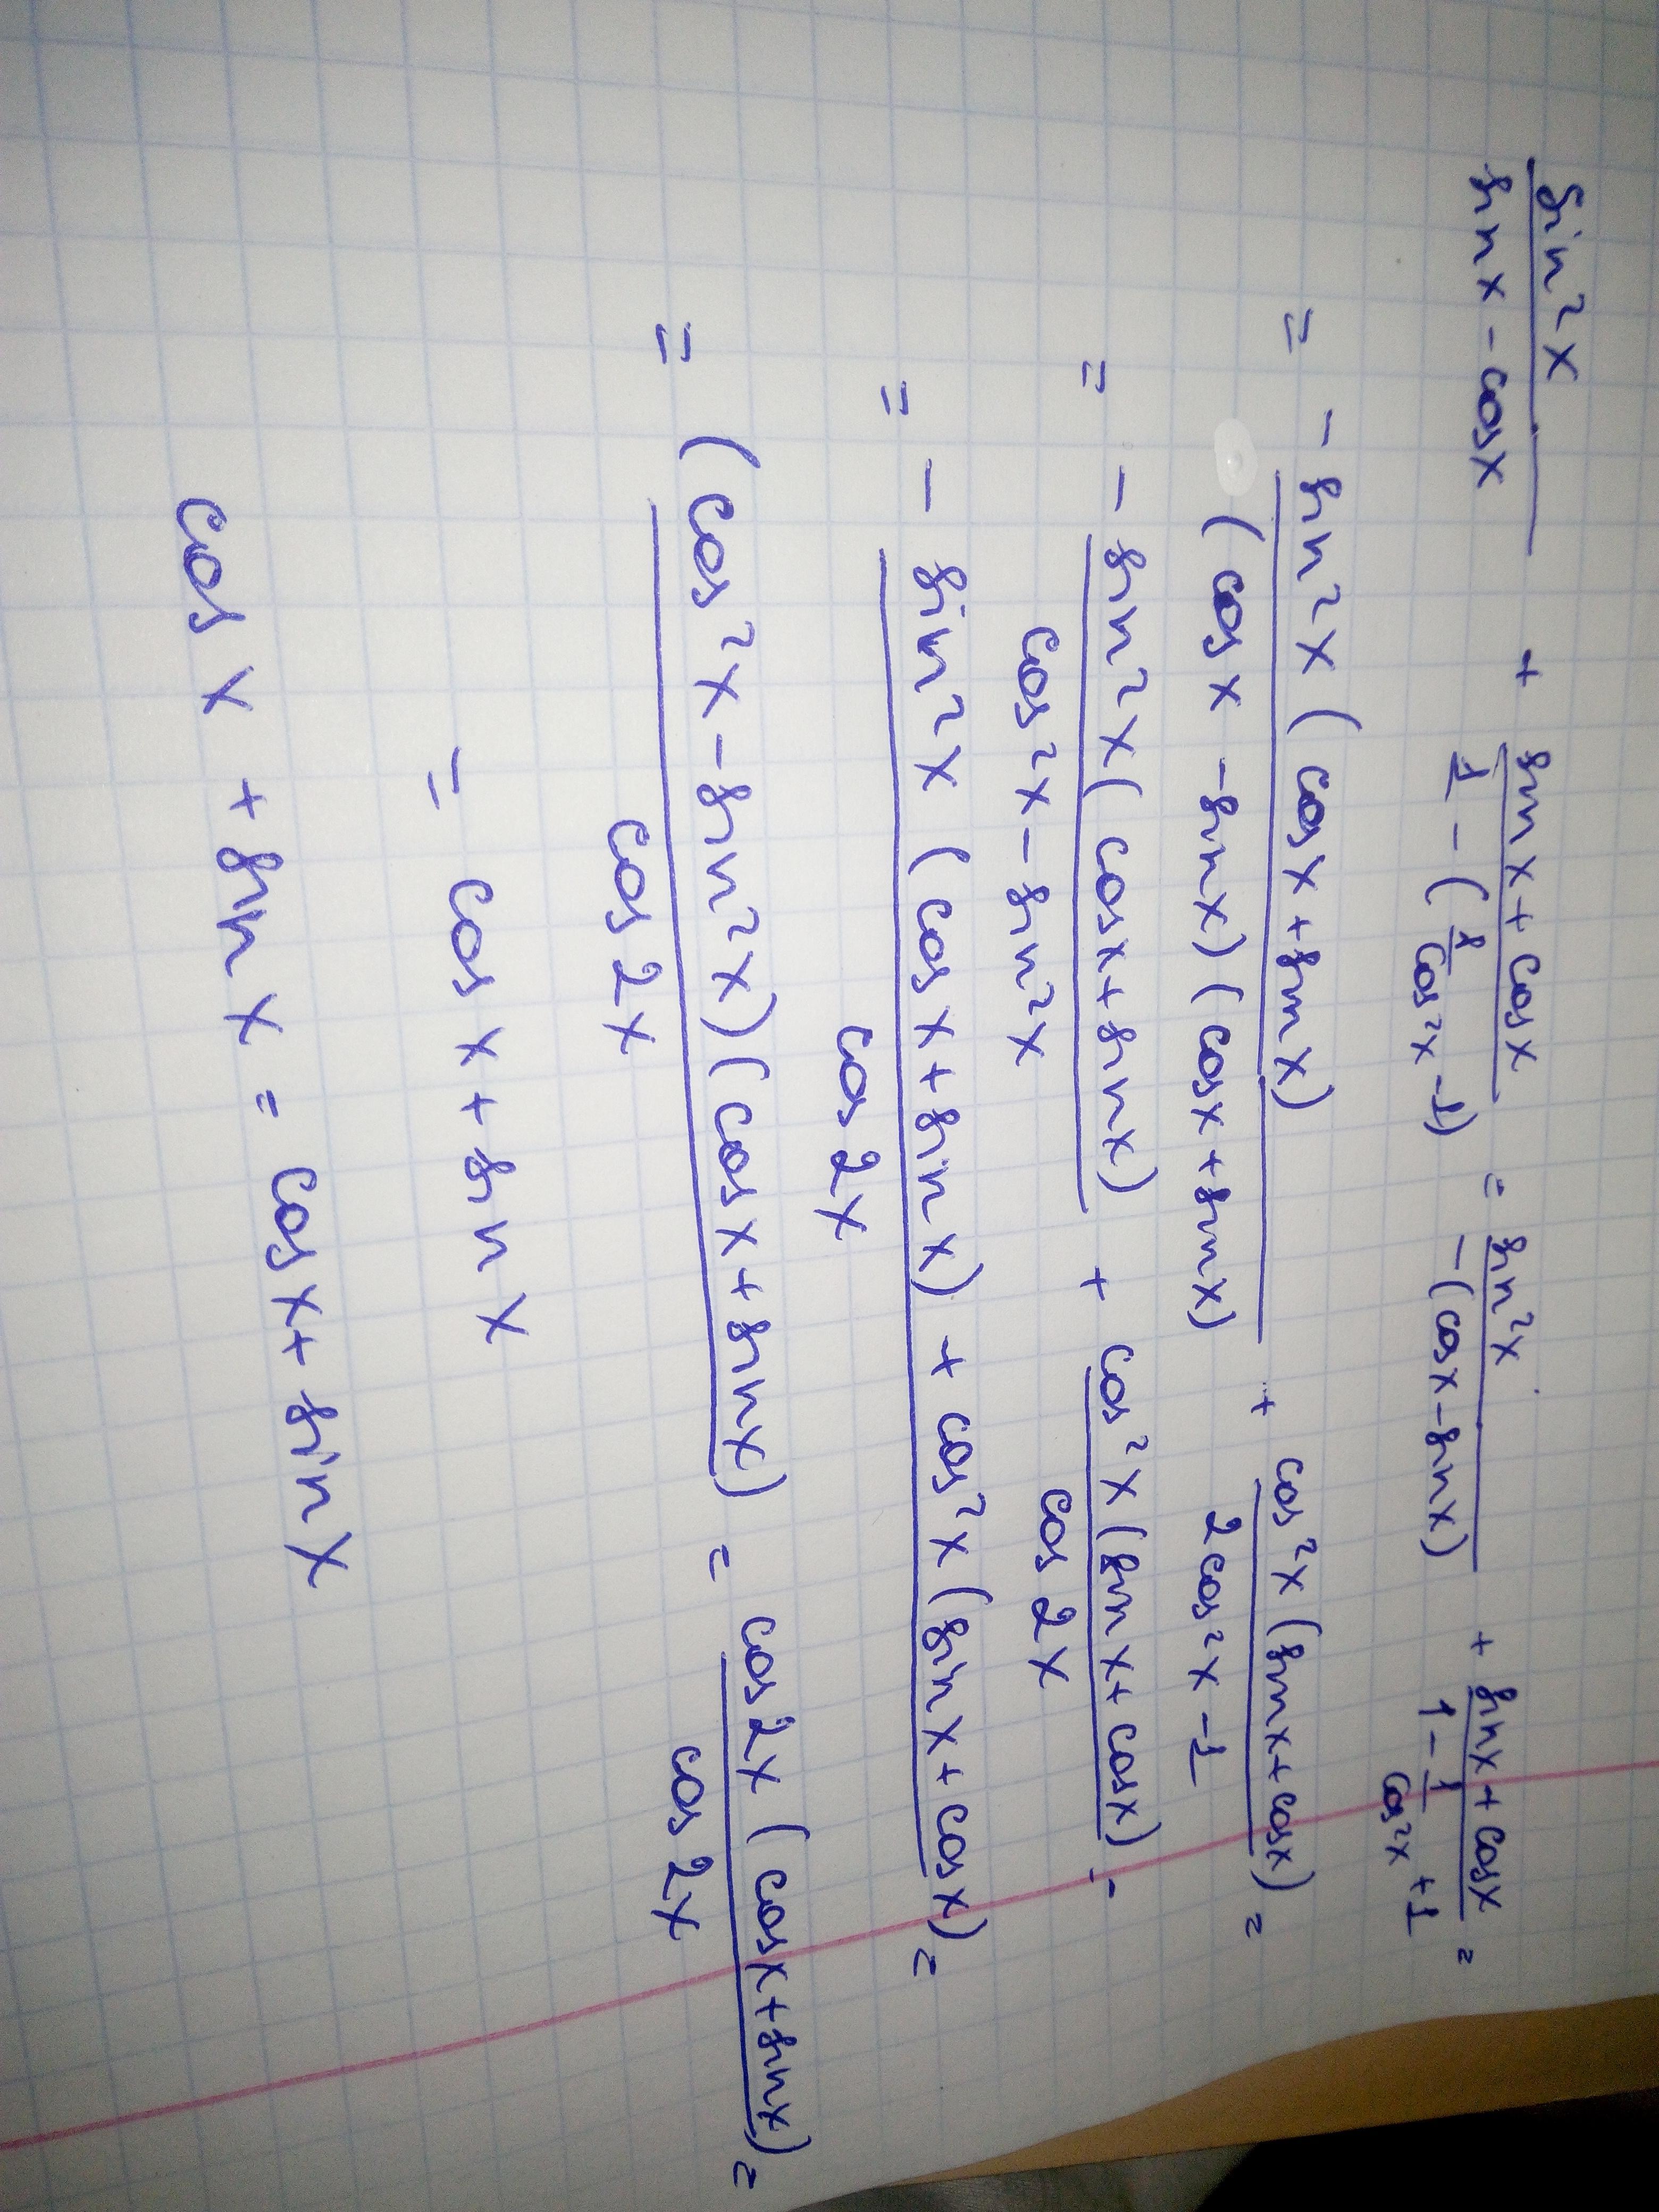 sin²x / (sin x - cos x) + (sin x + cos x) / (1 - (1/cos²x - 1)) = sin²x / -(cos x - sin x) + (sin x + cos x) / (1 - 1/cos²x + 1) =
= - sin²x (cos x + sin x) / (cos x - sin x)(cos x + sin x) + cos²x (sin x + cos x) / (2cos²x - 1) =
= - sin²x (cos x + sin x) / (cos²x - sin²x) + cos²x (sin x + cos x) / cos 2x =
= (- sin²x (cos x + sin x) + cos²x (sin x + cos x)) / cos 2x =
= (cos²x - sin²x)(cos x + sin x) / cos 2x = cos 2x (cos x + sin x) / cos 2x =
= cos x + sin x
cos x + sin x = cos x + sin x